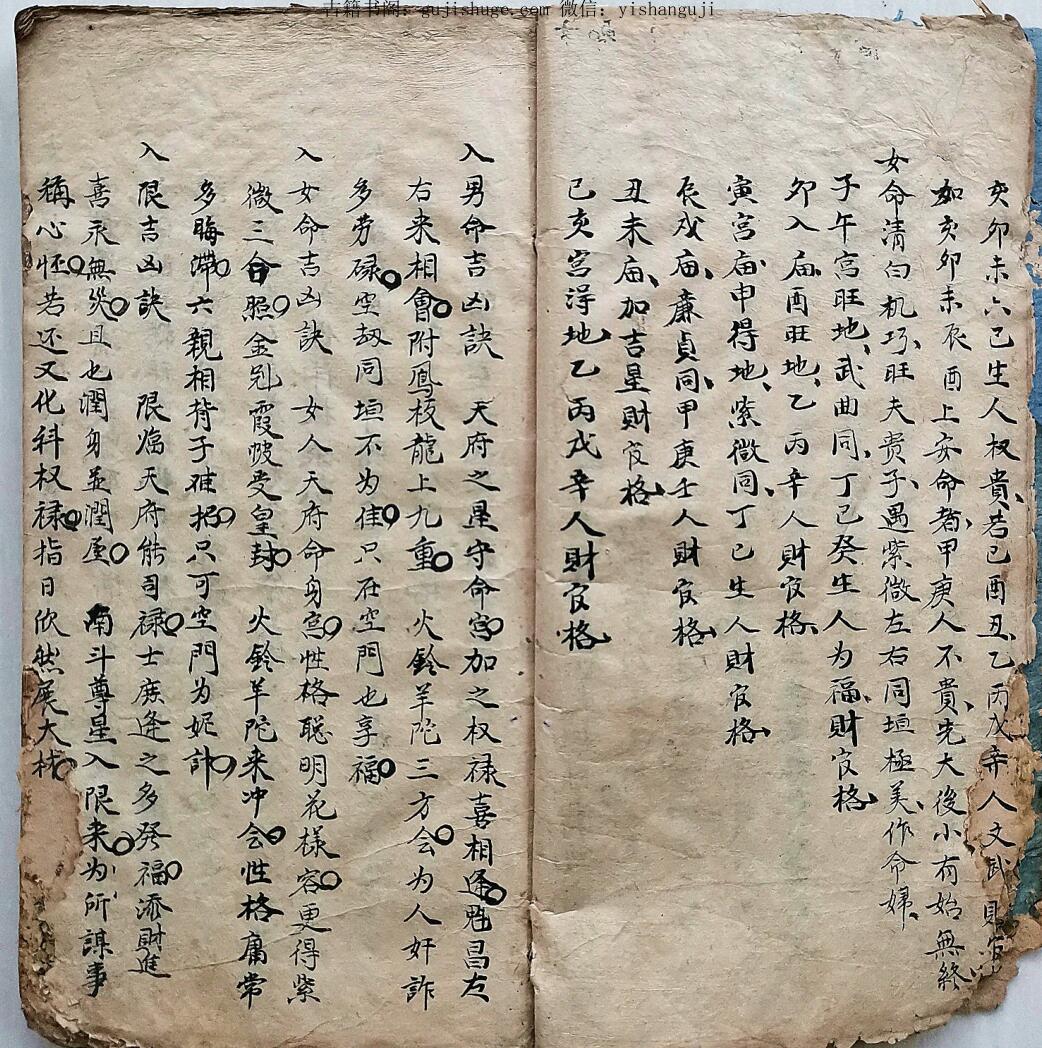 古籍书阁: gujishuge.com 微信: yishanguji
亥卯未六己生人权貴、若巳酉丑、乙丙戊辛人文武財官
如亥卯未辰酉上安命者、甲庚人不貴、先大後小有始無終
女命清白机巧、旺夫贵子、遇紫微左右同垣極美、作命婦、
子午宮旺地、武曲同、丁己癸生人为福、財官格、
卯入庙、酉旺地、乙丙辛人財官格、
寅宮庙、申得地、紫微同、丁己生人財官格、
辰戌庙、廉貞同、甲庚壬人財官格、
丑未庙、加吉星財官格、
巳亥宮得地、乙丙戊辛人財官格
入男命吉凶訣 天府之星守命宫○加之权禄喜相逢○魁昌左
右来相會○附凤板龍上九重○ 火鈴羊陀三方会○为人奸詐
多劳碌○空劫同垣不为佳○只在空門也享福○
入女命吉凶訣 女人天府命身宫○性格聪明花樣容○更得紫
微三合照○金冠霞帔受皇封○ 火鈴羊陀来冲会○性格庸常
多晦滞○六親相背子难招○只可空門为妮計○
入限吉凶訣 限临天府能司禄○士庶逢之多発福○添財進
喜永無災○且也潤身並潤屋○ 南斗尊星入限来○为所謀事
稱心怀○若还又化科权禄○指日欣然展大材○